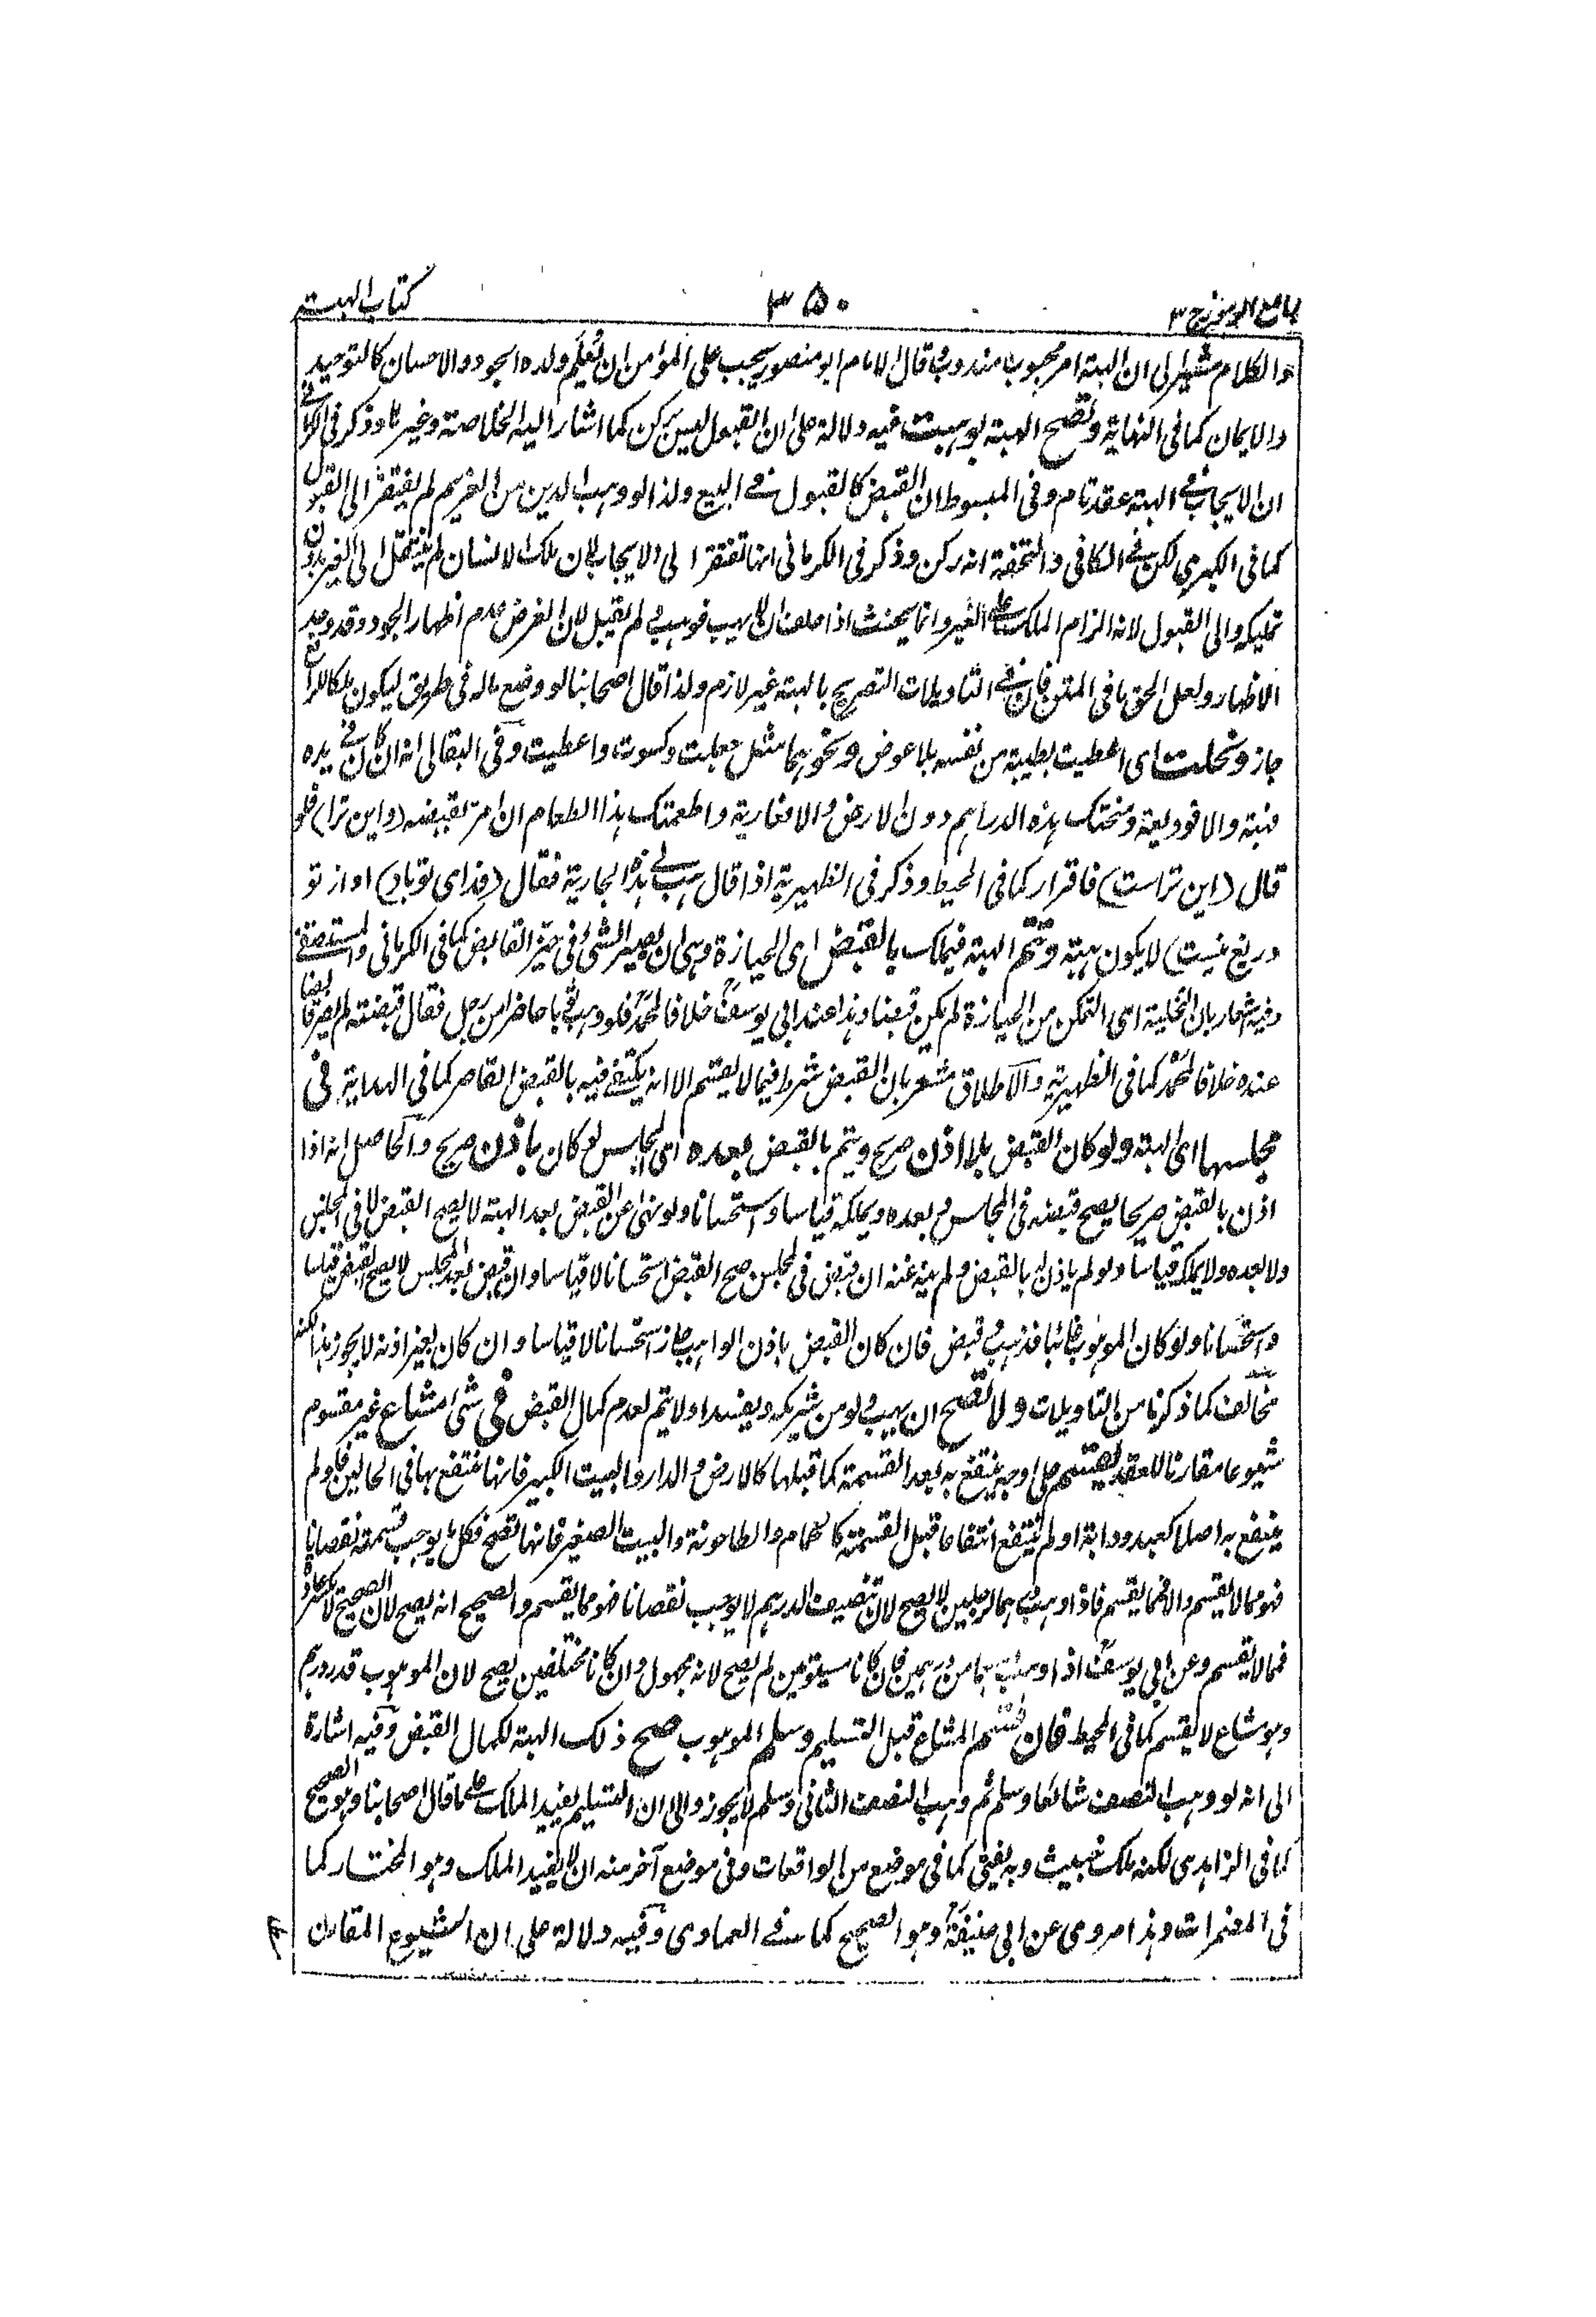 جامع الرموز ج ٣ ٣٥٠ كتاب الهبة
والكلام مشير الى ان الهبة امر محبوب لا مندوب وقال الامام ابو منصور يجب على المؤمن ان يعلم ولده الجود والاحسان كالتوحيد
والايمان كما فى النهاية وتصح الهبة بوهبت فيه دلالة على ان القبول ليس بركن كما اشار اليه الخلاصة وغيرها وذكر فى الكرمانى
ان الايجاب فى الهبة عقد تام وفى المبسوط ان القبض كالقبول فى البيع ولذا لو وهب الدين من الغريم لم يفتقر الى القبول
كما فى الكبرى لكن فى الكافى والتحفة انه ركن وذكر فى الكرمانى انها تفتقر الى الايجاب لان ملك الانسان لم ينتقل الى الغير بدون
تمليكه والى القبول لانه الزام الملك على الغير وانما يحنث اذا حلف ان لا يهب فوهب ولم يقبل لان الغرض عدم اظهار الجود وقد وجد
الاظهار ولعل الحق ما فى المتن فان فى التاويلات التصريح بالهبة غير لازم ولذا قال اصحابنا لو وضع ماله فى طريق ليكون ملكا للرافع
جاز ونحلت اى اعطيت بطيبة من نفسه بلا عوض ونحوهما مثل جعلت وكسوت واعطيت وفى البقالى انه ان كان فى يده
فهبة والا فوديعة ومنحتك هذه الدراهم دون الارض والا فعارية واطعمتك هذا الطعام ان امر بقبضه (واين ترا) فلو
قال (اين تراست) فاقرار كما فى المحيط وذكر فى الظهيرية اذا قال هب لى هذه الجارية فقال (فداى تو باد) او از تو
دريغ نيست) لا يكون هبة وتتم الهبة فيملك بالقبض اى الحيازة وهى ان يصير الشئ فى حيز القابض كما فى الكرمانى والمستصفى
وفيه اشعار بان التخلية اى التمكن من الحيازة لم يكن قبضا وهذا عند ابى يوسف خلافا لمحمد فلو وهب ثوبا حاضرا من رجل فقال قبضته لم يصر قابضا
عنده خلافا لمحمد كما فى الظهيرية والاطلاق مشعر بان القبض شرط فيما لا يقسم الا انه يكتفى فيه بالقبض القاصر كما فى الهداية فى
مجلسها اى الهبة ولو كان القبض بلا اذن صريح ويتم بالقبض بعده اى المجلس لو كان باذن صريح والحاصل انه اذا
اذن بالقبض صريحا يصح قبضه فى المجلس وبعده ويملكه قياسا واستحسانا ولو نهى عن القبض بعد الهبة لا يصح القبض لا فى المجلس
ولا بعده ولا يملكه قياسا ولو لم ياذن له بالقبض ولم ينه عنه ان قبض فى المجلس صح القبض استحسانا لا قياسا وان قبض بعد المجلس لا يصح القبض قياسا
واستحسانا ولو كان الموهوب غائبا فذهب وقبض فان كان القبض باذن الواهب جاز استحسانا لا قياسا وان كان بغير اذنه لا يجوز هذا لكنه
مخالف كما ذكرنا من التاويلات ولا تصح ان يهب ولو من شريكه ويفسد او لا يتم لعدم كمال القبض فى شئ مشاع غير مقسوم
شيوعا مقارنا للعقد يقسم على وجه ينتفع به بعد القسمة كما قبلها كالارض والدار والبيت الكبير فانها ينتفع بها فى الحالين فلو لم
ينتفع به اصلا كعبد ودابة او لم ينتفع انتفاعا قبل القسمة كالحمام والطاحونة والبيت الصغير فانها تصح فكل ما يوجب قسمته نقصانا
فهو مما لا يقسم والا فمما يقسم فاذا وهب درهما لرجلين لا يصح لان تنصيف الدرهم لا يوجب نقصانا فهو مما يقسم والصحيح انه يصح لان الصحيح لا يكسر عادة
فمما لا يقسم وعن ابى يوسف اذا وهب درهما من درهمين فان كانا مستويين لم يصح لانه مجهول وان كانا مختلفين يصح لان الموهوب قدر درهم
وهو مشاع لا يقسم كما فى المحيط فان قسم المشاع قبل التسليم وسلم الموهوب صح ذلك الهبة لكمال القبض وفيه اشارة
الى انه لو وهب النصف شائعا وسلم ثم وهب النصف الثانى وسلم لا يجوز والى ان التسليم يفيد الملك على ما قال اصحابنا وهو الصحيح
كما فى الزاهدى لكنه ملك خبيث وبه يفتى كما فى موضع من الواقعات وفى موضع آخر منه ان لا يفيد الملك وهو المختار كما
فى المضمرات وهذا مروى عن ابى حنيفة وهو الصحيح كما فى العمادى وفيه دلالة على ان الشيوع المقارن